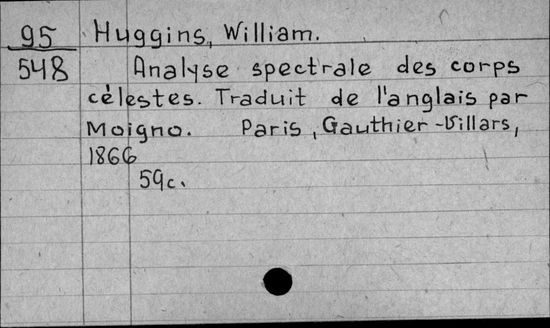 95 Huggins, William.
548 Analyse spectrale des corps
célestes. Traduit de l'anglais par
Moigno. Paris, Gauthier-Villars,
1866
59c.